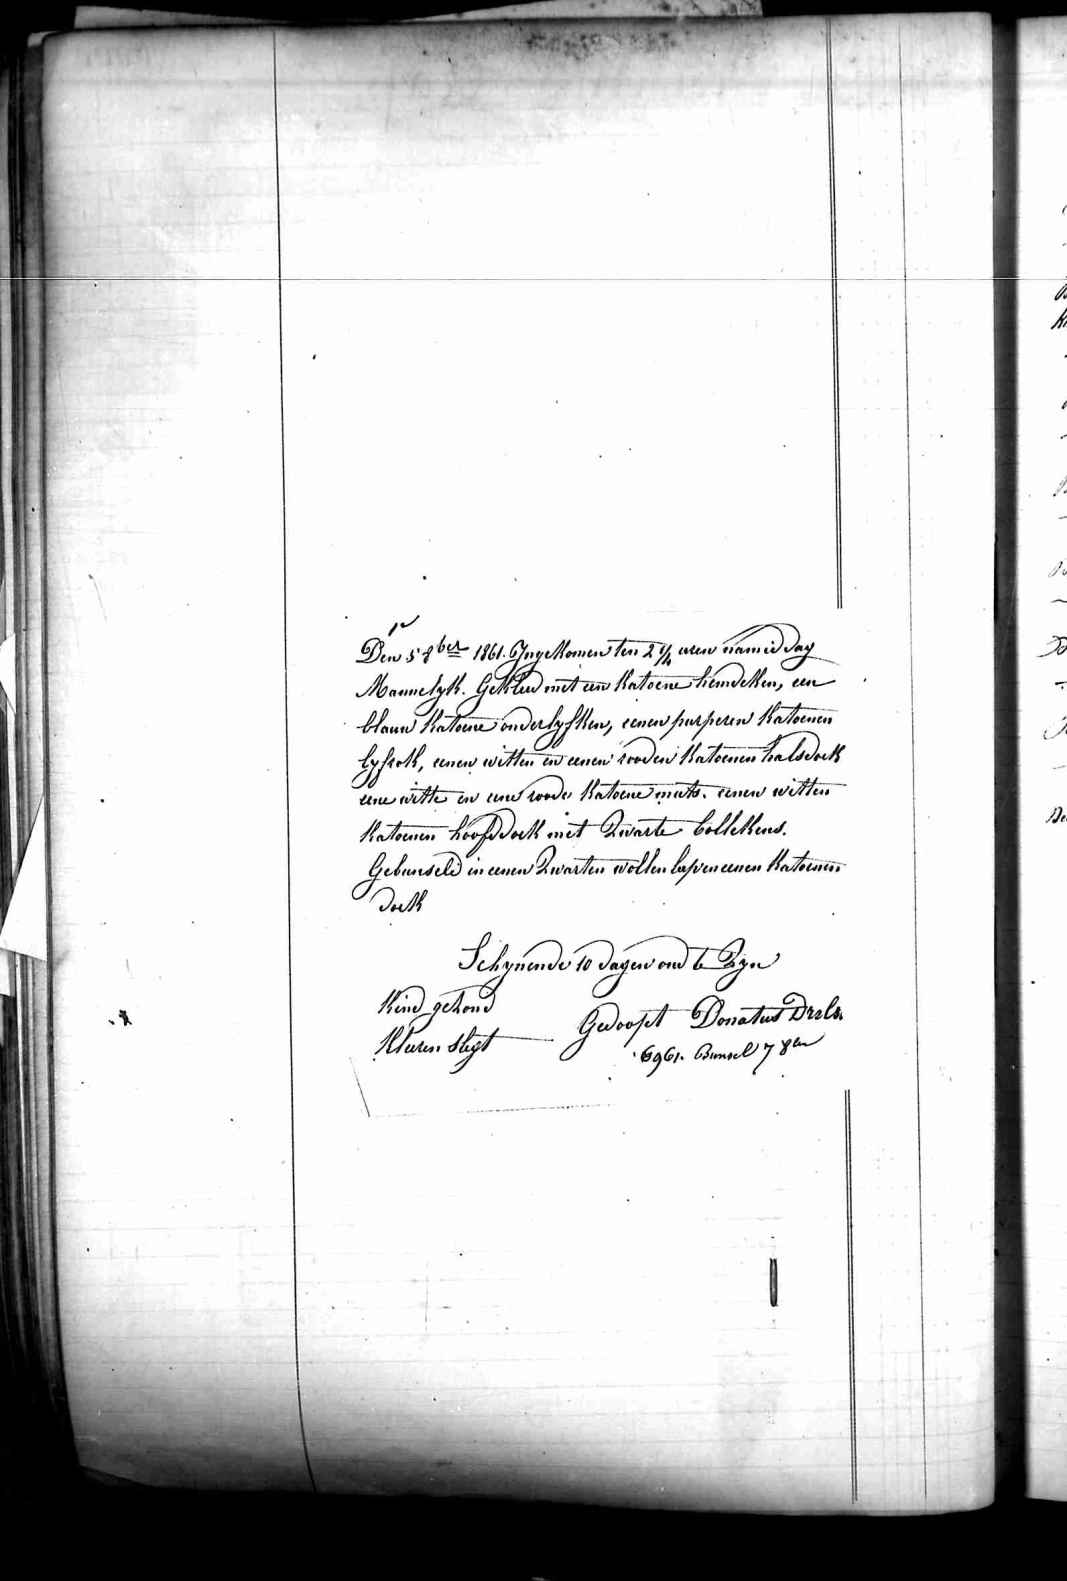 Den 5 8ber 1861. Ingekomen ten 2 1/4 uren namiddag
Mannelyk. Gekleed met een katoene hemdeken, een
blauw katoene onderlyfken, eenen purperen katoenen
lyfrok, eenen witten en eenen rooden katoenen halsdoek
eene witte en eene roode katoene muts. eenen witten
katoenen hoofddoek met zwarte bollekens.
Gebunseld in eenen zwarten wollen lap en eenen katoenen
doek
Schynende 10 dagen oud te zyn
Kind gezond
Kleeren slegt
Gedoopt Donatus Drals.
6961. Bunsel 7 8en